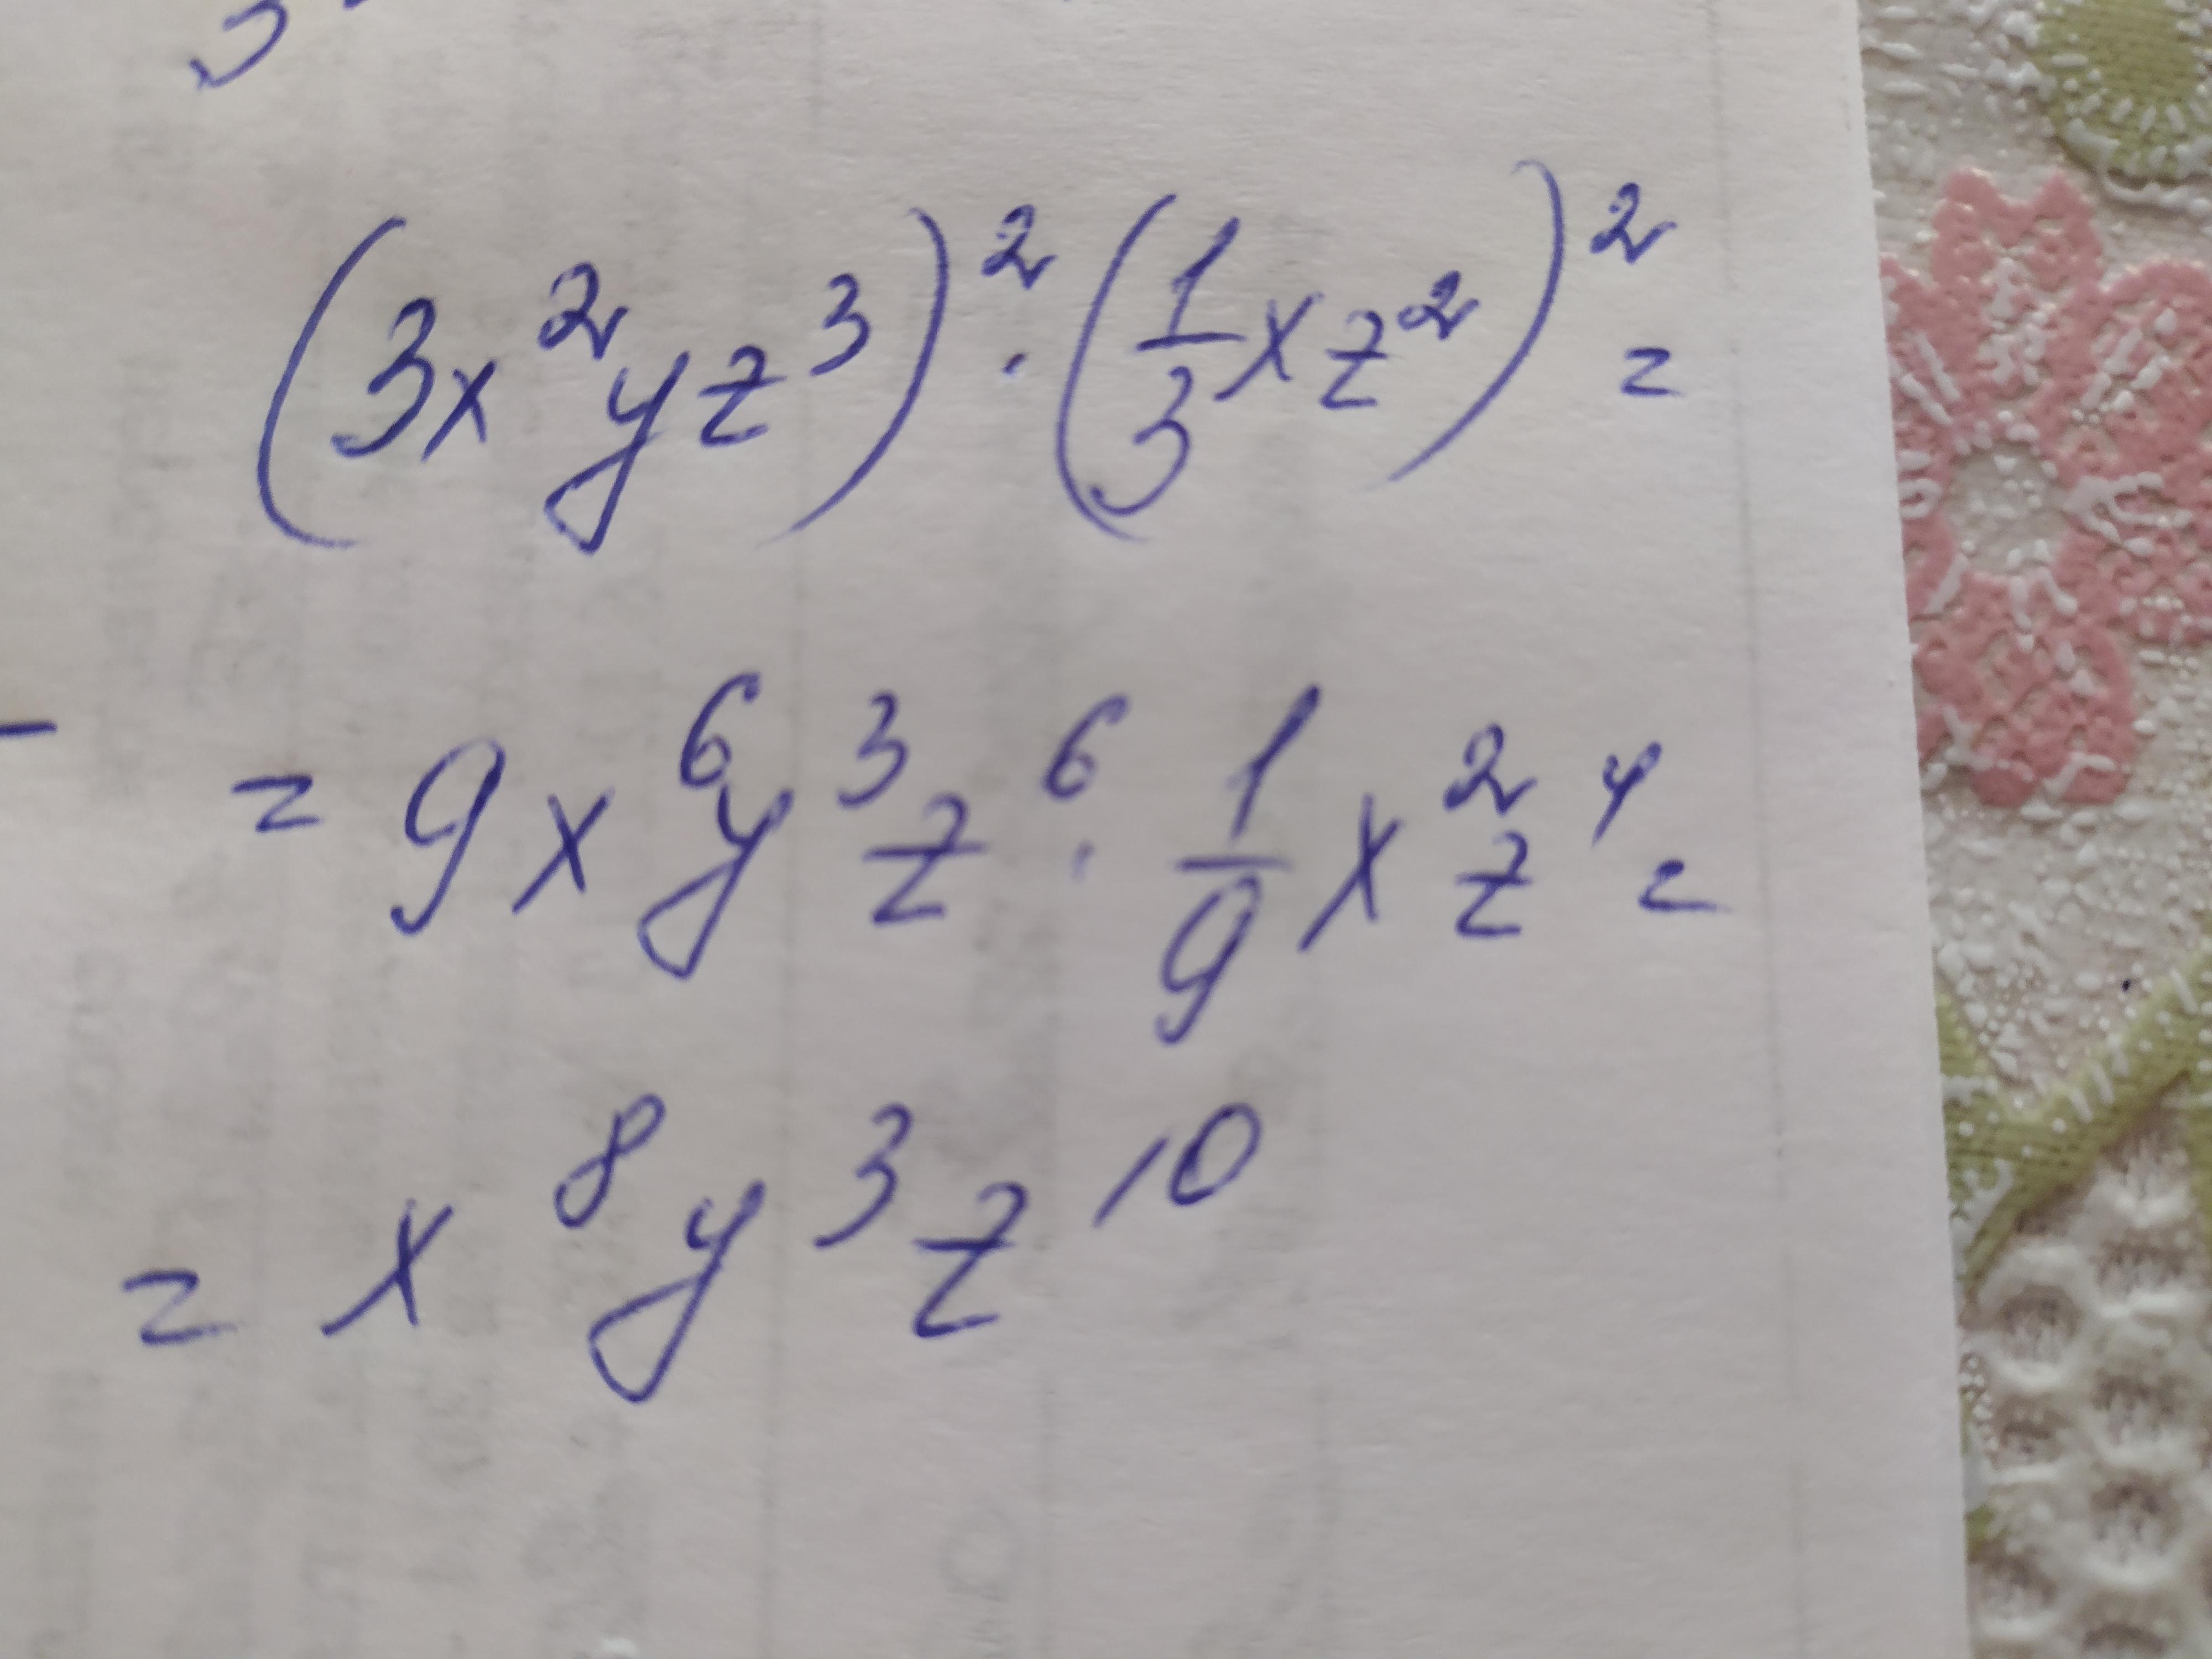 (3x²yz³)² · (1/3 xz²)² =
= 9x⁶y³z⁶ · 1/9 x²z⁴ =
= x⁸y³z¹⁰